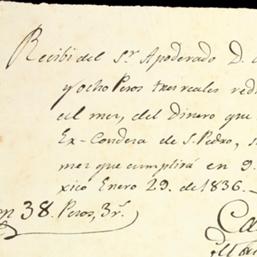 Recibi del Sr. Apoderado D.
y ocho Pesos tres reales
al mes, del Dinero que
Ex-Condesa de S. Pedro,
mes que cumplirá en 9.
xico Enero 29. de 1836.
38. Pesos, 3 rs.
Ca